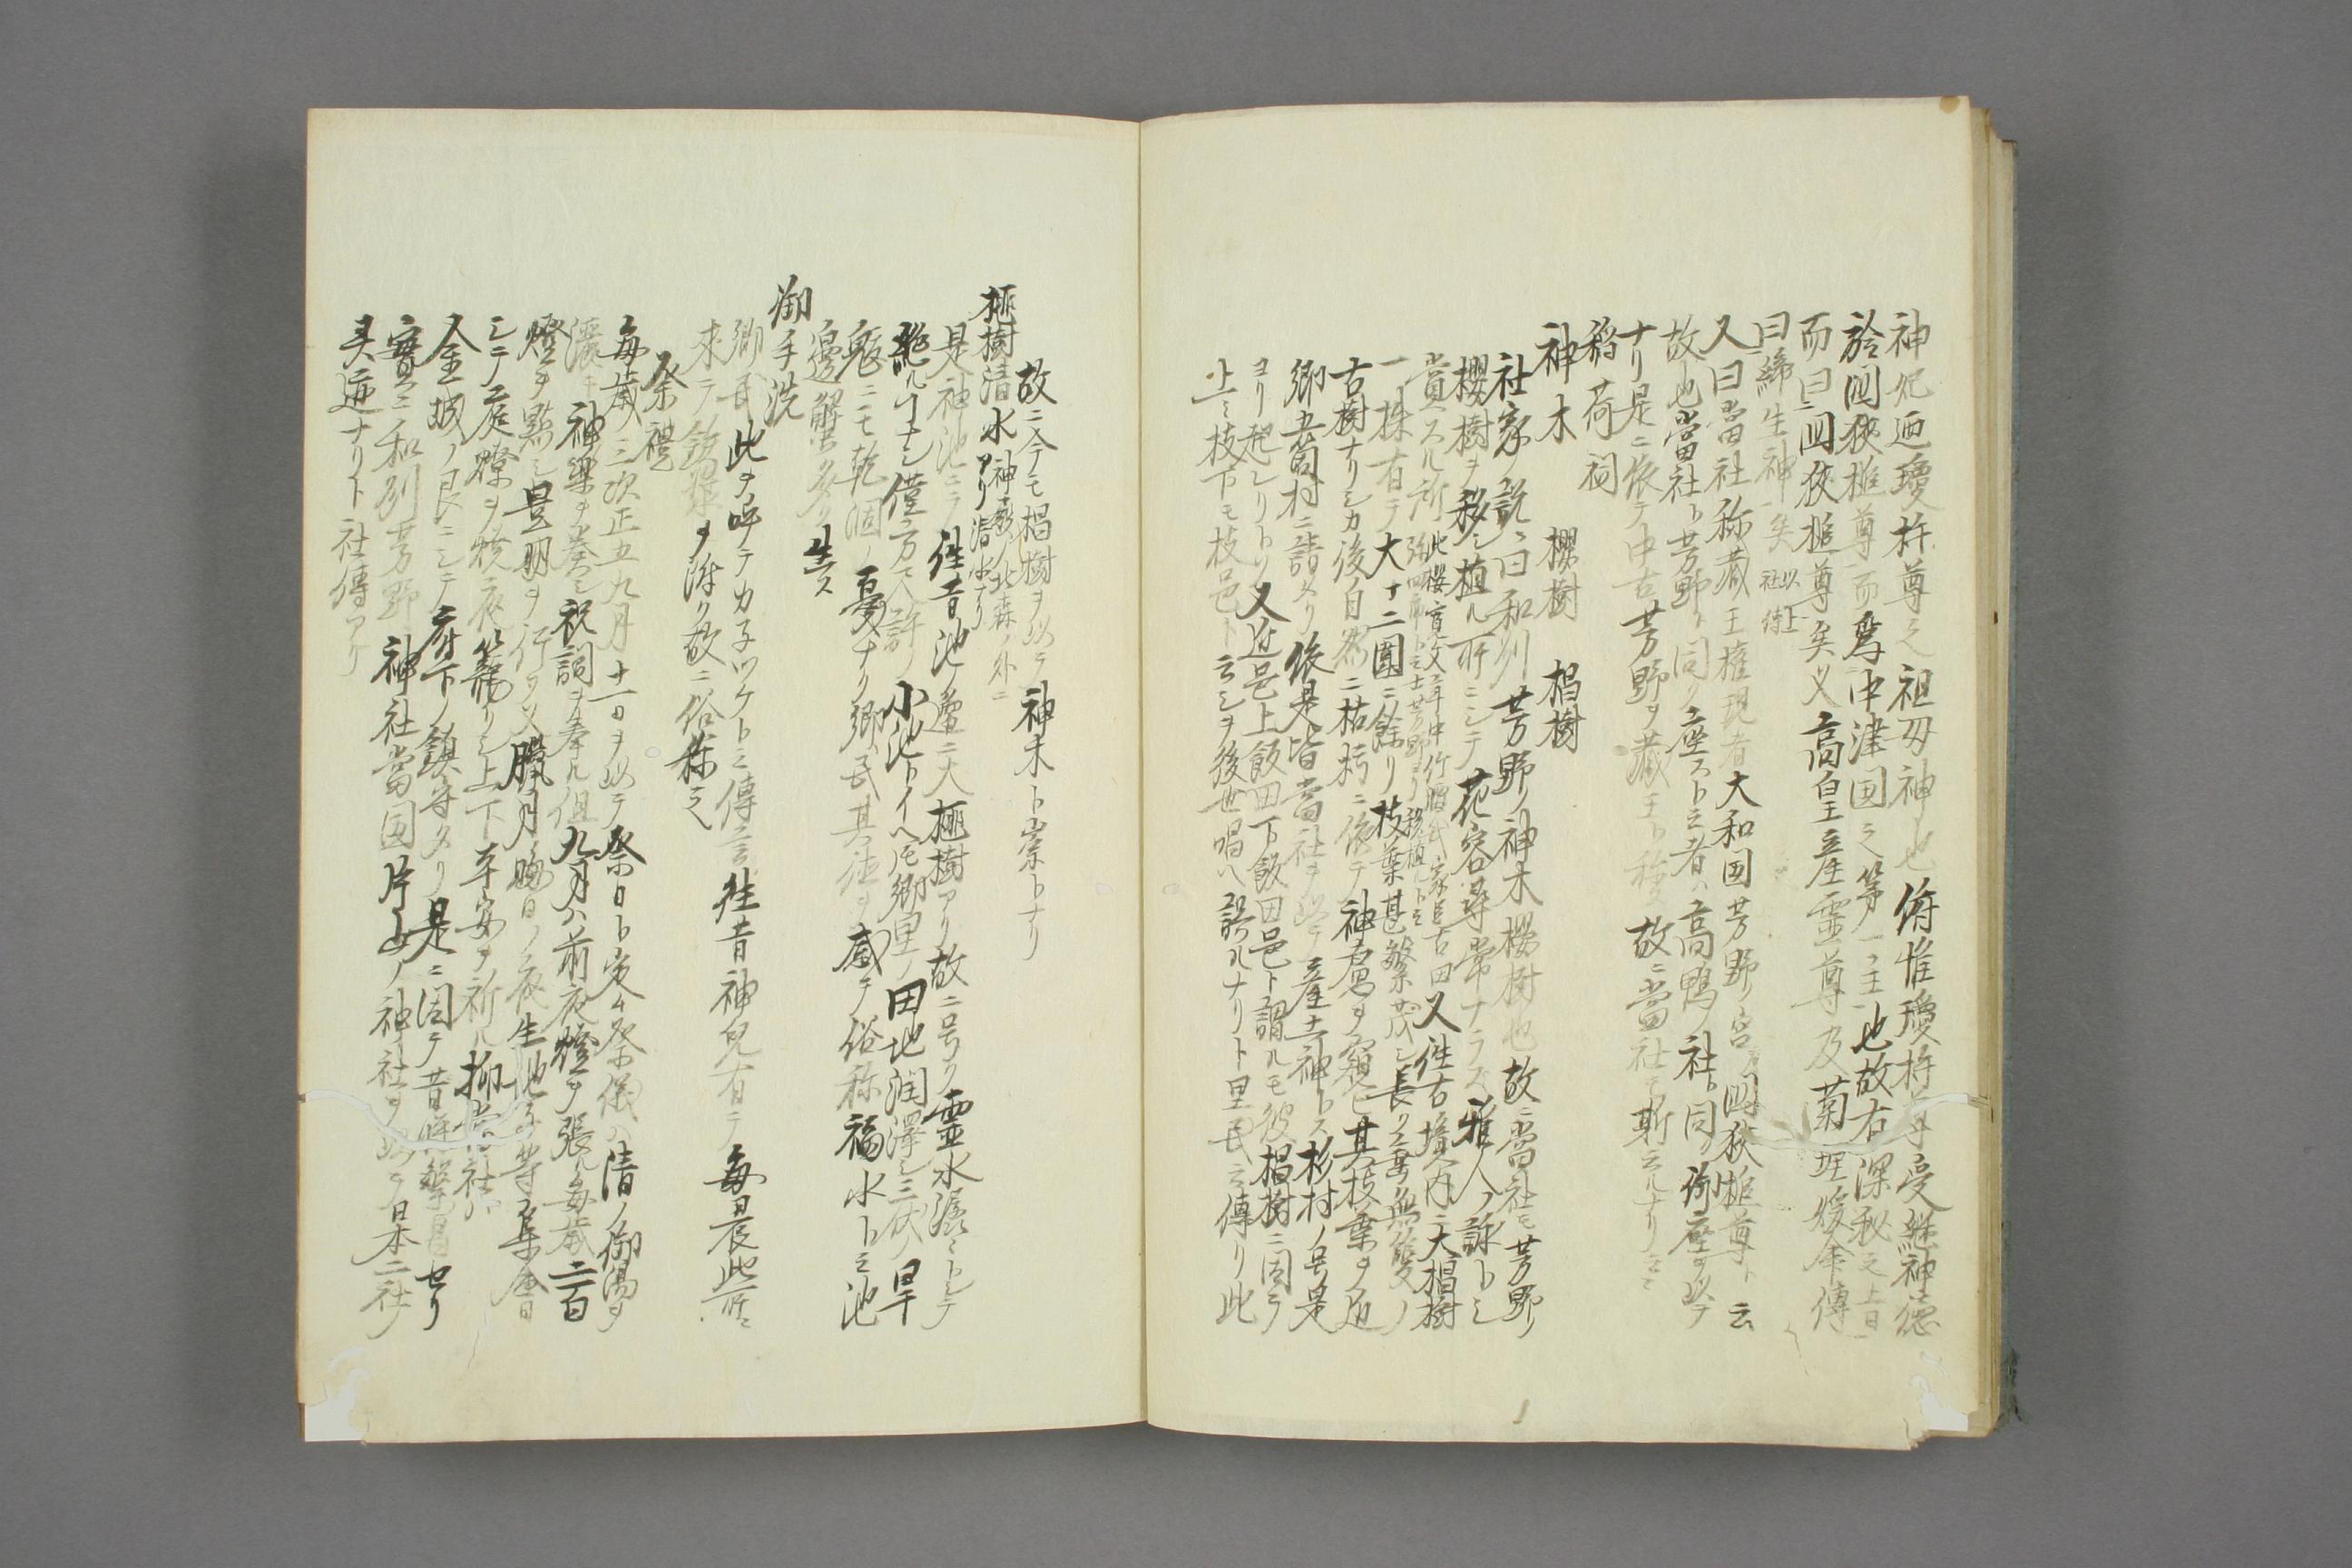 神妃迺瓊杵尊之祖刕神也俯惟瓊杵尊受継神徳
於国狭槌尊而葦中津国之第一ノ主也故右深秘之上旨
而曰国狭槌尊矣又高皇産靈尊及菊理媛命傳
曰締生神矣 以上社傳
又曰當社称蔵王権現者大和国芳野ノ宮 国狭槌尊ト云
故也當社ト芳野ト同ク座ストニ者ハ高鴨ノ社ト同ク御座ヲ以テ
ナリ是ニ依テ中古芳野ヲ蔵王ト称ス故ニ當社モ斯云ルナリ云々
稲荷祠
神木 櫻樹 椙樹
社家ノ説ニ曰和刕芳野ノ神木櫻樹也故ニ當社モ芳野ノ
櫻樹ヲ移シ植ル所ニシテ花容尋常ナラズ雅人ノ詠トシ
賞スル所 此櫻寛文年中竹腰氏家臣古田弥四郎ト云士芳野ヨリ移植ルト云 又往古境内ニ大椙樹
一株有テ大十二圍ニ餘リ枝葉甚繁茂シ長ク無雙ノ
古樹ナリシカ後自然ニ枯朽ニ依テ神慮ヲ窺ヒ其枝葉ヲ近
郷五箇村ニ請メリ依是皆當社ヲ以テ産土神トス杉村ノ号是
ヨリ起レリトリ又近邑上飯田下飯田邑ト謂ルモ彼椙樹ニ因テ
上ミ枝下モ枝邑ト云シヲ後世唱ヘ誤ルナリト里民云傳リ此
故ニ今モ椙樹ヲ以テ神木ト崇トナリ
極樹清水 神影ノ北森ノ外ニアリ清水ナリ
是神池ニテ往昔池ノ邊ニ大極樹アリ故ニ号ク靈水滾々トシテ
絶ルコトナシ僅方丈許ノ小池トイヘモ郷里ノ田地潤澤シ三伏ノ旱
魃ニモ乾涸ノ憂ナリ郷民其徳ヲ感テ俗称福水ト云池
邊蟹多ク生ス
御手洗
郷民此ヲ呼テカネツケト云傳言往昔神兒有テ毎晨此所ニ
来テ鉄漿ヲ附ク故ニ俗称云
祭禮
毎歳三次正五九月十一日ヲ以テ祭日ト定ム祭儀ハ清ノ御湯ヲ
灑キ神樂ヲ奏シ祝詞ヲ奉ル但九月ハ前夜燈ヲ張ル毎歳二百
燈ヲ點シ豊朋ヲ行フ又臘月晦日ノ夜生地子等集會
シテ庭燎ヲ焼夜籠リシ上下平安ヲ祈ル抑當社ハ
金城ノ艮ニシテ府下ノ鎮守タリ是ニ因テ昔時繁昌セリ
實ニ和刕芳野神社當国片山ノ神社ヲ以テ日本二社ノ
美迹ナリト社傳アリ